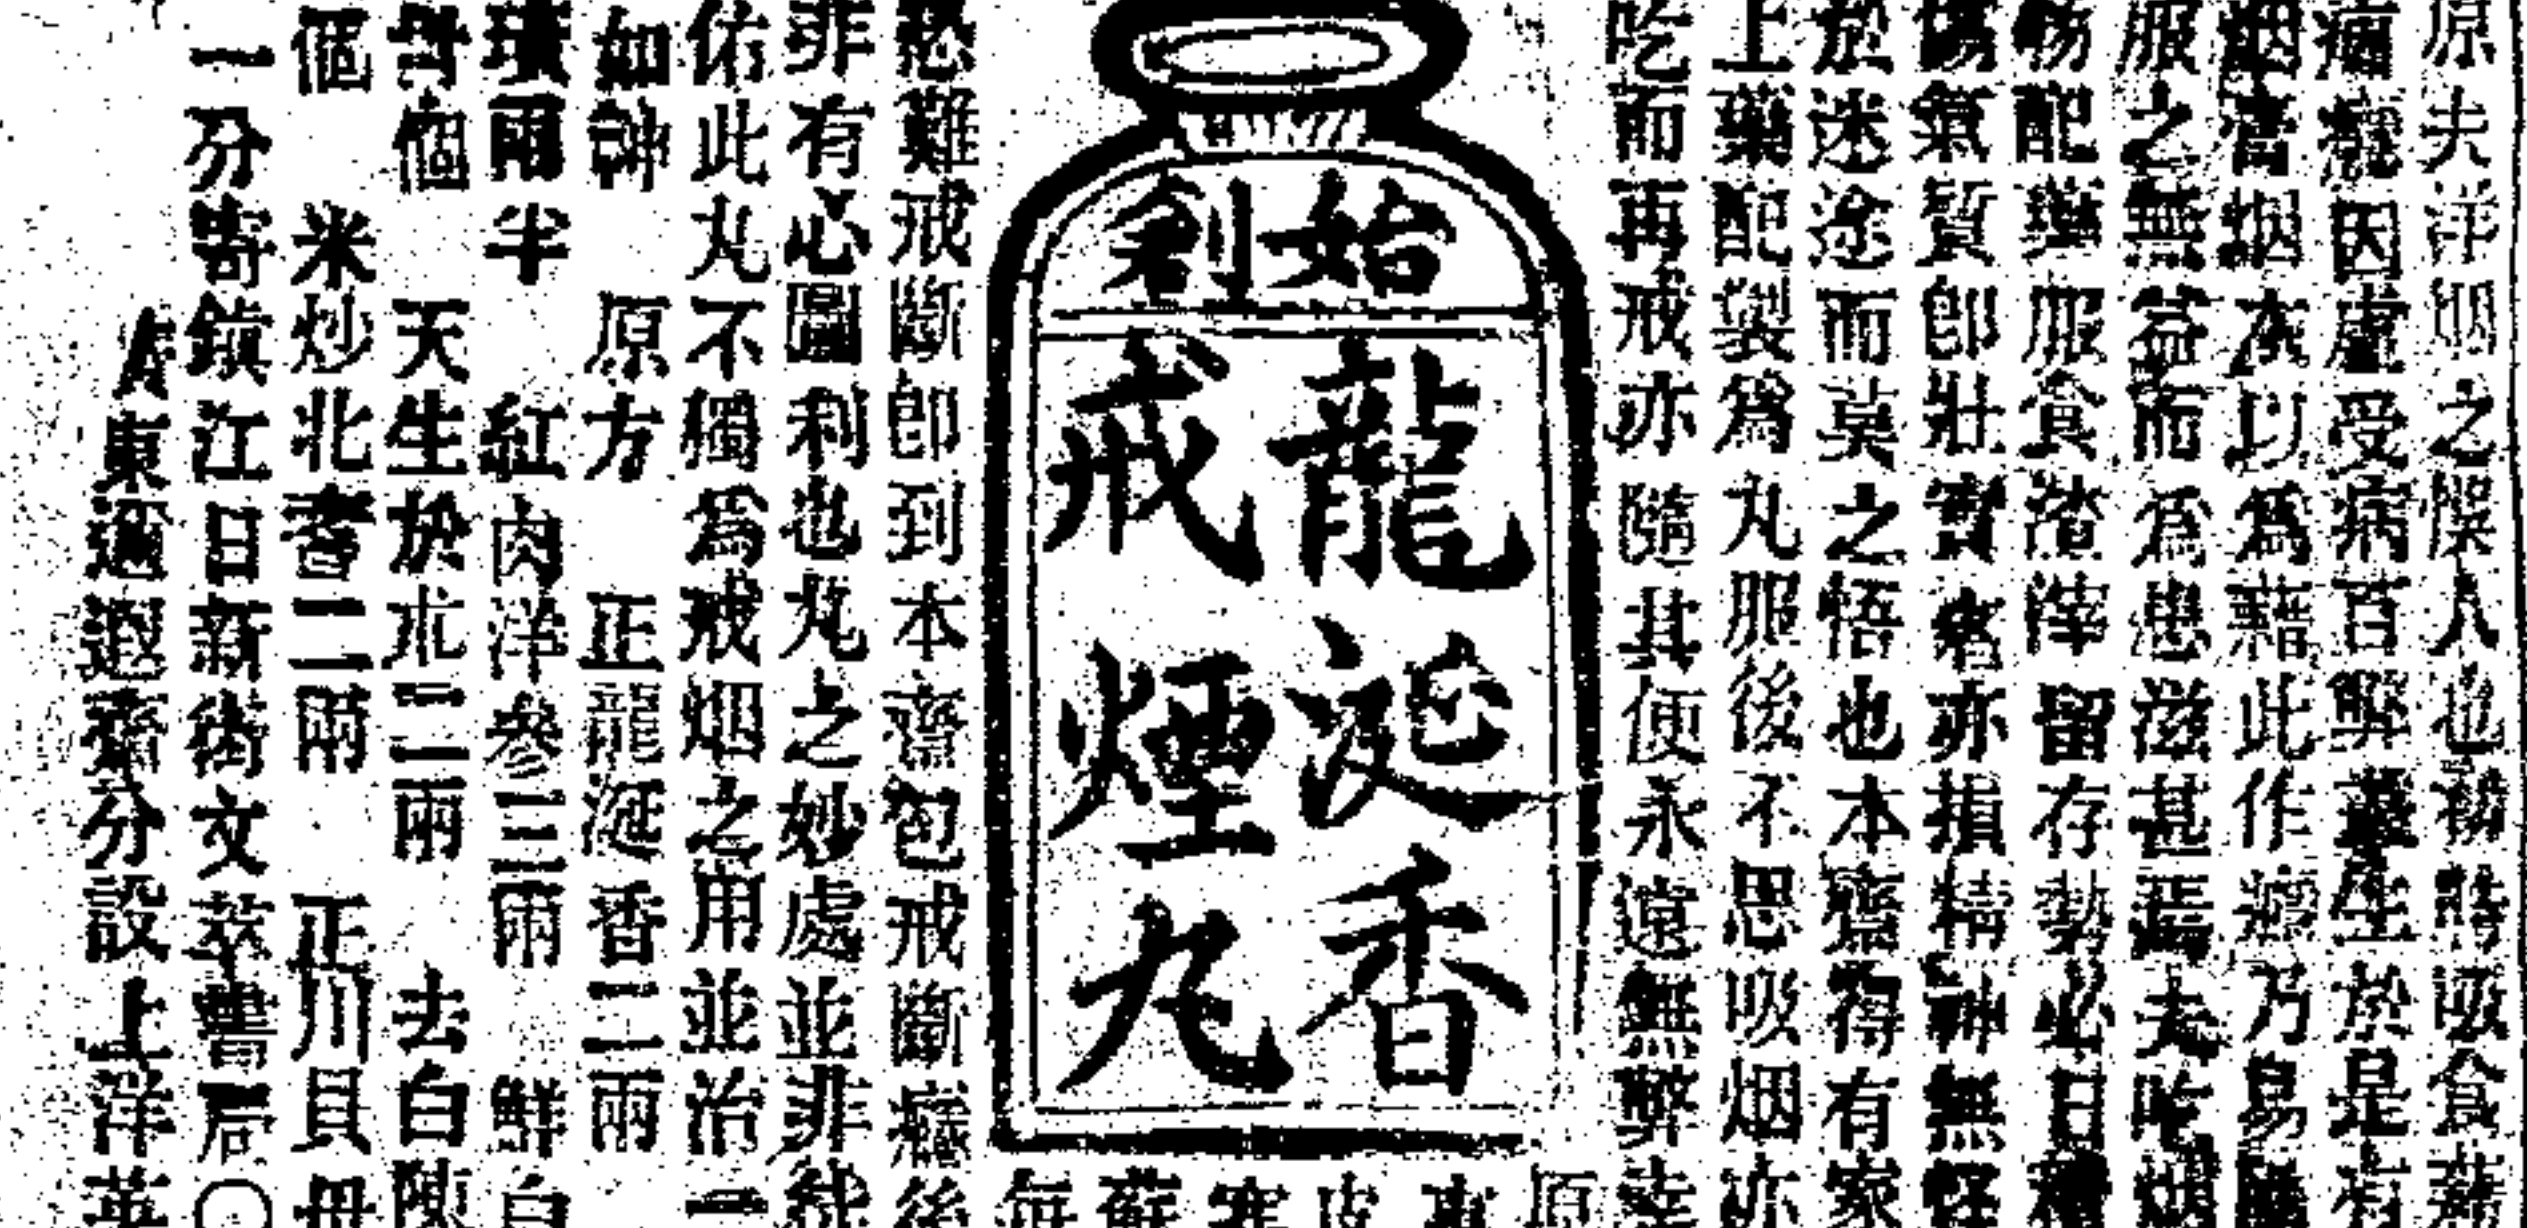 原夫洋烟之悞人也初時吸食藉
病癮因虛受病百弊叢生於是有
烟膏烟灰以爲藉此作癮乃易
服之無益而爲患滋甚焉夫吃烟
物配藥服食渣滓留存勢必日積
傷氣質卽壯實者亦損精神無怪
於迷途而莫之悟也本齋得有家
上藥配製爲丸服後不思吸烟亦
吃而再戒亦隨其便永遠無弊幸
始創
龍涎香
戒煙丸
原
每蘇寒皮
愁難戒斷卽到本齋包戒斷癮後
非有心圖利也丸之妙處並非純
佑此丸不獨爲戒烟之用並治一
如神 原方 正龍涎香二兩
璜兩半 紅肉洋參三兩 鮮白
個 天生於朮二兩 去白陳
個 米炒北耆二兩 正川貝毋
一分寄鎮江日新街文萃書局〇
東邇遐齋分設上洋英